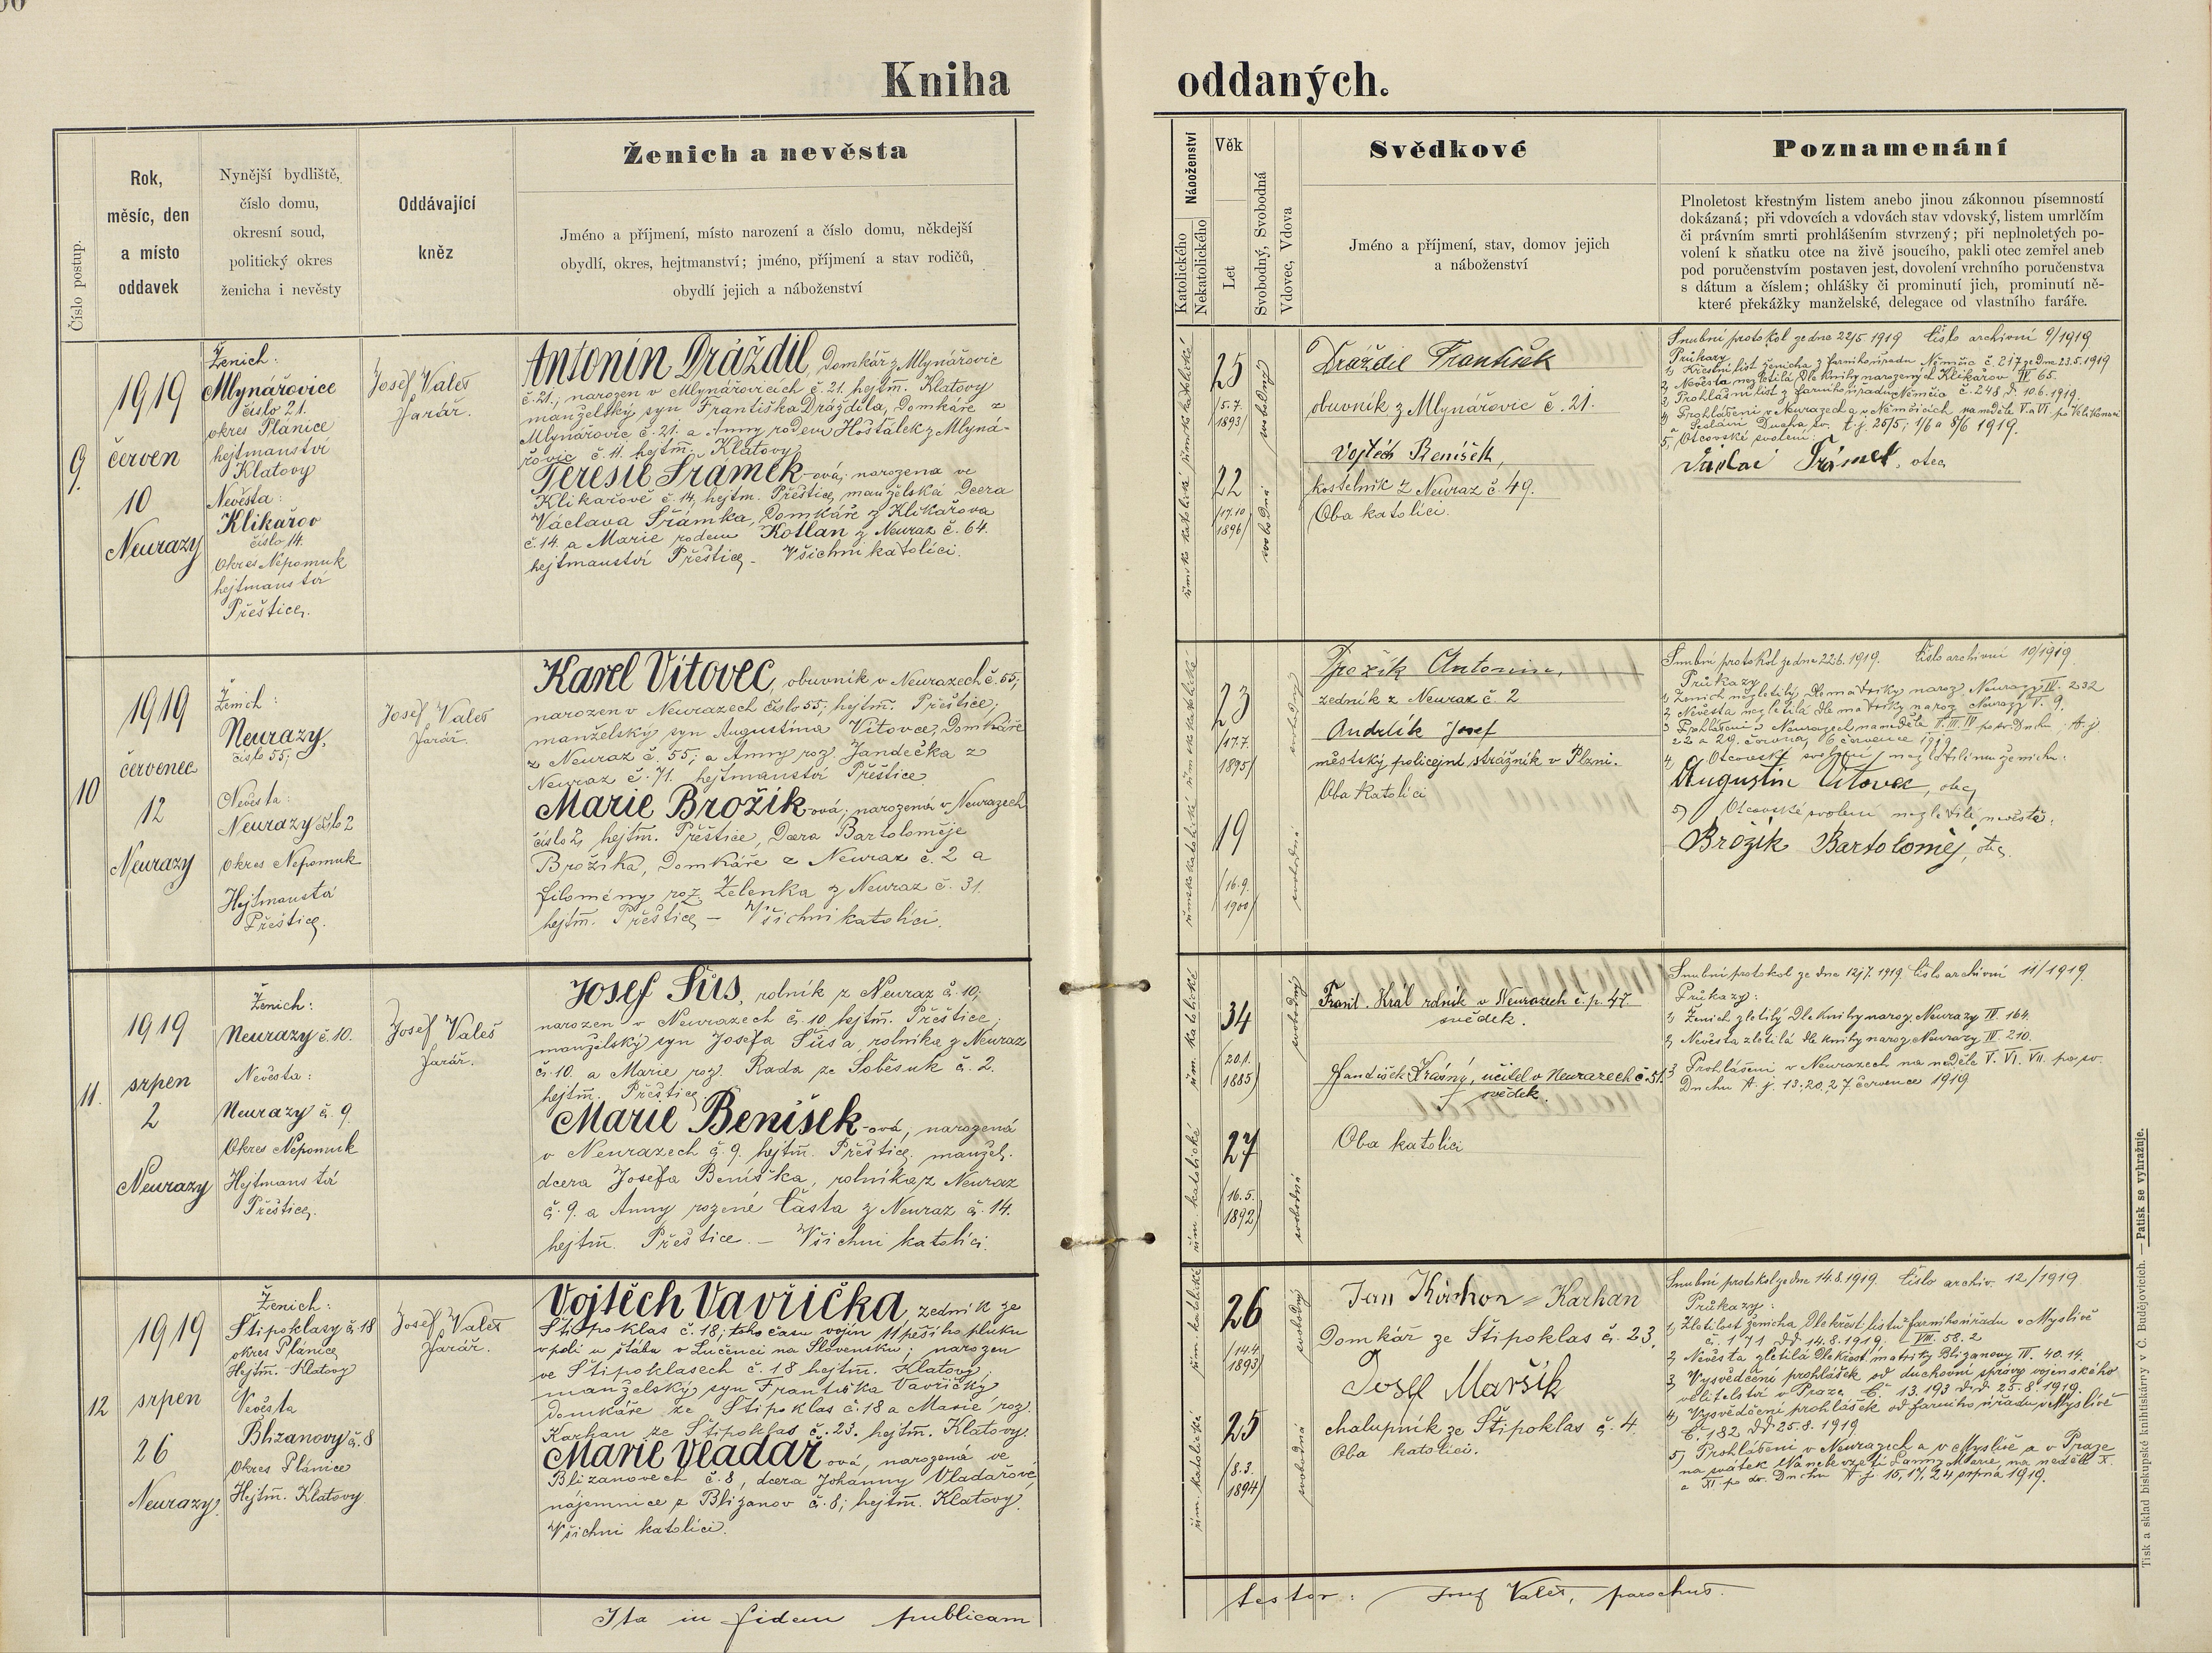 Kniha oddaných.
Číslo postup.
Rok,
měsíc, den
a místo
oddavek
Nynější bydliště,
číslo domu,
okresní soud,
politický okres
ženicha i nevěsty
Oddávající
kněz
Ženich a nevěsta
Jméno a příjmení, místo narození a číslo domu, někdejší
obydlí, okres, hejtmanství; jméno, příjmení a stav rodičů,
obydlí jejich a náboženství
Náboženství
Katolického
Nekatolického
Věk
Let
Svobodný, Svobodná
Vdovec, Vdova
Svědkové
Jméno a příjmení, stav, domov jejich
a náboženství
Poznamenání
Plnoletost křestným listem anebo jinou zákonnou písemností
dokázaná; při vdovcích a vdovách stav vdovský, listem umrlčím
či právním smrti prohlášením stvrzený; při neplnoletých po-
volení k sňatku otce na živě jsoucího, pakli otec zemřel aneb
pod poručenstvím postaven jest, dovolení vrchního poručenstva
s dátum a číslem; ohlášky či prominutí jich, prominutí ně-
které překážky manželské, delegace od vlastního faráře.
9.
1919
červen
10
Neurazy
Ženich:
Mlynářovice
číslo 21.
okres Plánice
hejtmanství
Klatovy
Nevěsta:
Klikařov
číslo 14.
Okres Nepomuk
hejtmanství
Přeštice.
Josef Valeš
farář.
Antonín Dráždil, Domkář z Mlynářovic
č. 21., narozen v Mlynářovicích č. 21. hejtm̄. Klatovy
manželský syn Františka Dráždila, Domkáře z
Mlynářovic č. 21. a Anny rodem Hošťálek z Mlyná-
řovic č. 11. hejtm̄. Klatovy
Teresie Šrámek-ová; narozena ve
Klikařově č. 14, hejtm. Přeštice, manželská Dcera
Václava Šrámka, Domkáře z Klikařova
č. 14. a Marie rodem Kotlan z Neuraz č. 64.
hejtmanství Přeštice. - Všichni katolíci.
římsko katolické římsko katolické
25
/5.7.
1893/
22
/17.10
1896/
svobodný
svobodná
Dráždil František
obuvník z Mlynářovic č. 21.
Vojtěch Benišek,
kostelník z Neuraz č. 49.
Oba katolíci.
Snubní protokol ze dne 22/5 1919 Číslo archivní 9/1919
Průkazy
1) Křestní list ženicha z farního úřadu Němčic č. 217 ze dne 23.5.1919
2) Nevěsta nezletilá Dle knihy narozených Klikařov IV 65.
3) Prohlašní list z farního úřadu Němčic č. 248 d. 10.6.1919.
4) Prohlášení v Neurazech a v Němčicích na neděle V. a VI. po Velikonoci
a Seslání Ducha sv. t. j. 25/5; 1/6 a 8/6 1919.
5) Otcovské svolení:
Václav Šrámek, otec
10
1919
červenec
12
Neurazy
Ženich:
Neurazy,
číslo 55;
Nevěsta:
Neurazy číslo 2
Okres Nepomuk
Hejtmanství
Přeštice.
Josef Valeš
farář.
Karel Vítovec, obuvník v Neurazech č. 55,
narozen v Neurazech číslo 55; hejtm̄. Přeštice;
manželský syn Augustína Vítovce, Domkáře
z Neuraz č. 55; a Anny roz. Jandečka z
Neuraz č. 71. hejtmanství Přeštice
Marie Brožík-ová; narozená v Neurazech
číslo 2, hejtm̄. Přeštice, Dcera Bartoloměje
Brožíka, Domkáře z Neuraz č. 2 a
Filomény roz. Zelenka z Neuraz č. 31.
hejtm̄. Přeštice - Všichni katolíci.
římsko katolické římsko katolické
23
/17.7.
1895/
19
/16.9.
1900/
svobodný
svobodná
Brožík Antonín,
zedník z Neuraz č. 2
Andrlík Josef
městský policejní strážník v Plzni.
Oba katolíci
Snubní protokol ze dne 22.6.1919. Číslo archivní 10/1919.
Průkazy
1) Ženich nezletilý Dle matriky naroz. Neurazy IV. 232
2) Nevěsta nezletilá dle matriky naroz. Neurazy V. 9.
3) Prohlášení v Neurazech na neděle II. III. IV po sv. Duchu; t. j.
22 a 29. června, 6 července 1919
4) Otcovské svolení nezletilému ženichu:
Augustin Vítovec, otec
5) Otcovské svolení nezletilé nevěstě:
Brožík Bartoloměj, otec.
11.
1919
srpen
2
Neurazy
Ženich:
Neurazy č. 10.
Nevěsta:
Neurazy č. 9.
Okres Nepomuk
Hejtmanství
Přeštice.
Josef Valeš
farář.
Josef Šůs, rolník z Neuraz č. 10;
narozen v Neurazech č. 10 hejtm̄. Přeštice;
manželský syn Josefa Šůsa, rolníka z Neuraz
č. 10. a Marie roz. Rada ze Soběsuk č. 2.
hejtm̄. Přeštice
Marie Benišek-ová; narozená
v Neurazech č. 9. hejtm̄. Přeštice; manžel.
dcera Josefa Beníška, rolníka z Neuraz
č. 9. a Anny rozené Částa z Neuraz č. 14.
hejtm̄. Přeštice. - Všichni katolíci.
řím. katolické řím. katolické
34
/20.1.
1885/
27
/16.5.
1892/
svobodný
svobodná
Frant. Král rolník v Neurazech č. p. 47.
svědek.
František Krásný, učitel v Neurazech č. 51.
svědek.
Oba katolíci
Snubní protokol ze dne 12/7. 1919. Číslo archivní 11/1919.
Průkazy:
1) Ženich zletilý Dle knihy naroz. Neurazy IV. 164.
2) Nevěsta zletilá dle knihy naroz. Neurazy III. 210.
3) Prohlášení v Neurazech na neděle V. VI. VII. po sv.
Duchu t. j. 13; 20, 27. července 1919
12
1919
srpen
26
Neurazy.
Ženich:
Štipoklasy č. 18
okres Plánice
Hejtm̄. Klatovy
Nevěsta
Blizanovy č. 8
Okres Plánice
Hejtm̄. Klatovy
Josef Valeš
farář.
Vojtěch Vavřička, zedník ze
Štipoklas č. 18; toho času vojín 11 pěšího pluku
v poli u štábu v Lučenci na Slovensku; narozen
ve Štipoklasech č. 18 hejtm̄. Klatovy;
manželský syn Františka Vavřičky
domkáře ze Štipoklas č. 18 a Marie roz.
Karhan ze Štipoklas č. 23. hejtm̄. Klatovy.
Marie Vladař-ová, narozená ve
Blizanovech č. 8, dcera Johanny Vladařové,
nájemnice z Blizanov č. 8; hejtm̄. Klatovy.
Všichni katolíci.
řím. katolické řím. katolické
26
/14.4
1893/
25
/8.3.
1894/
svobodný
svobodná
Jan = Karhan
Domkář ze Štipoklas č. 23.
Josef Maršík
chalupník ze Štipoklas č. 4.
Oba katolíci.
Snubní protokol ze dne 14.8.1919. Číslo archiv. 12/1919.
Průkazy:
1) Zletilost ženicha Dle křest. listu farního úřadu v Myslívě
č. 171 dď 14.8.1919; VIII. 58. 2
2) Nevěsta zletilá Dle křest. matriky Blizanovy IV. 40. 14.
3) Vysvědčení prohlášek od duchovní správy vojenského
velitelství v Praze Č. 13.193 d.d. 25.8.1919.
4) Vysvědčení prohlášek od farního úřadu v Myslívě
Č. 182 dď 25.8.1919
5) Prohlášení v Neurazech a v Myslívě a v Praze
na svátek Nanebevzetí Panny Marie, na neděli X.
a XI po sv. Duchu t. j. 15, 17, 24 srpna 1919.
Ita in fidem publicam testor: Josef Valeš, parochus.
Tisk a sklad biskupské knihtiskárny v Č. Budějovicích. — Patisk se vyhražuje.